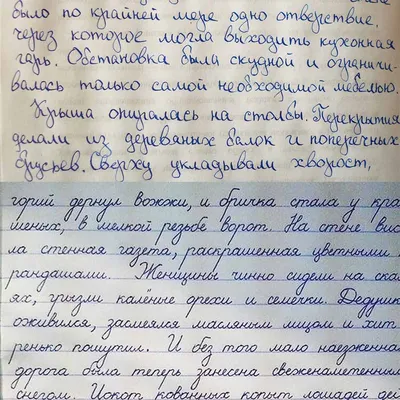 было по крайней мере одно отверствие,
через которое могла выходить кухонная
гарь. Обстановка была скудной и ограничи-
валась только самой необходимой мебелью.
Крыша опиралась на столбы. Перекрытия
делали из деревяных балок и поперечных
брусьев. Сверху укладывали хворост,
горий дернул вожжи, и бричка стала у кра
шеных, в мелкой резьбе ворот. На стене вис
ла стенная газета, раскрашенная цветными
рандашами. Женщины чинно сидели на ска
ях, грызли калёные орехи и семечки. Дедушк
оживился, засмеялся масляным лицом и хит
ренько пошутил. И без того мало наезженна
дорога была теперь занесена свеженаметенни
снегом. Цокот кованных копыт лошадей дей